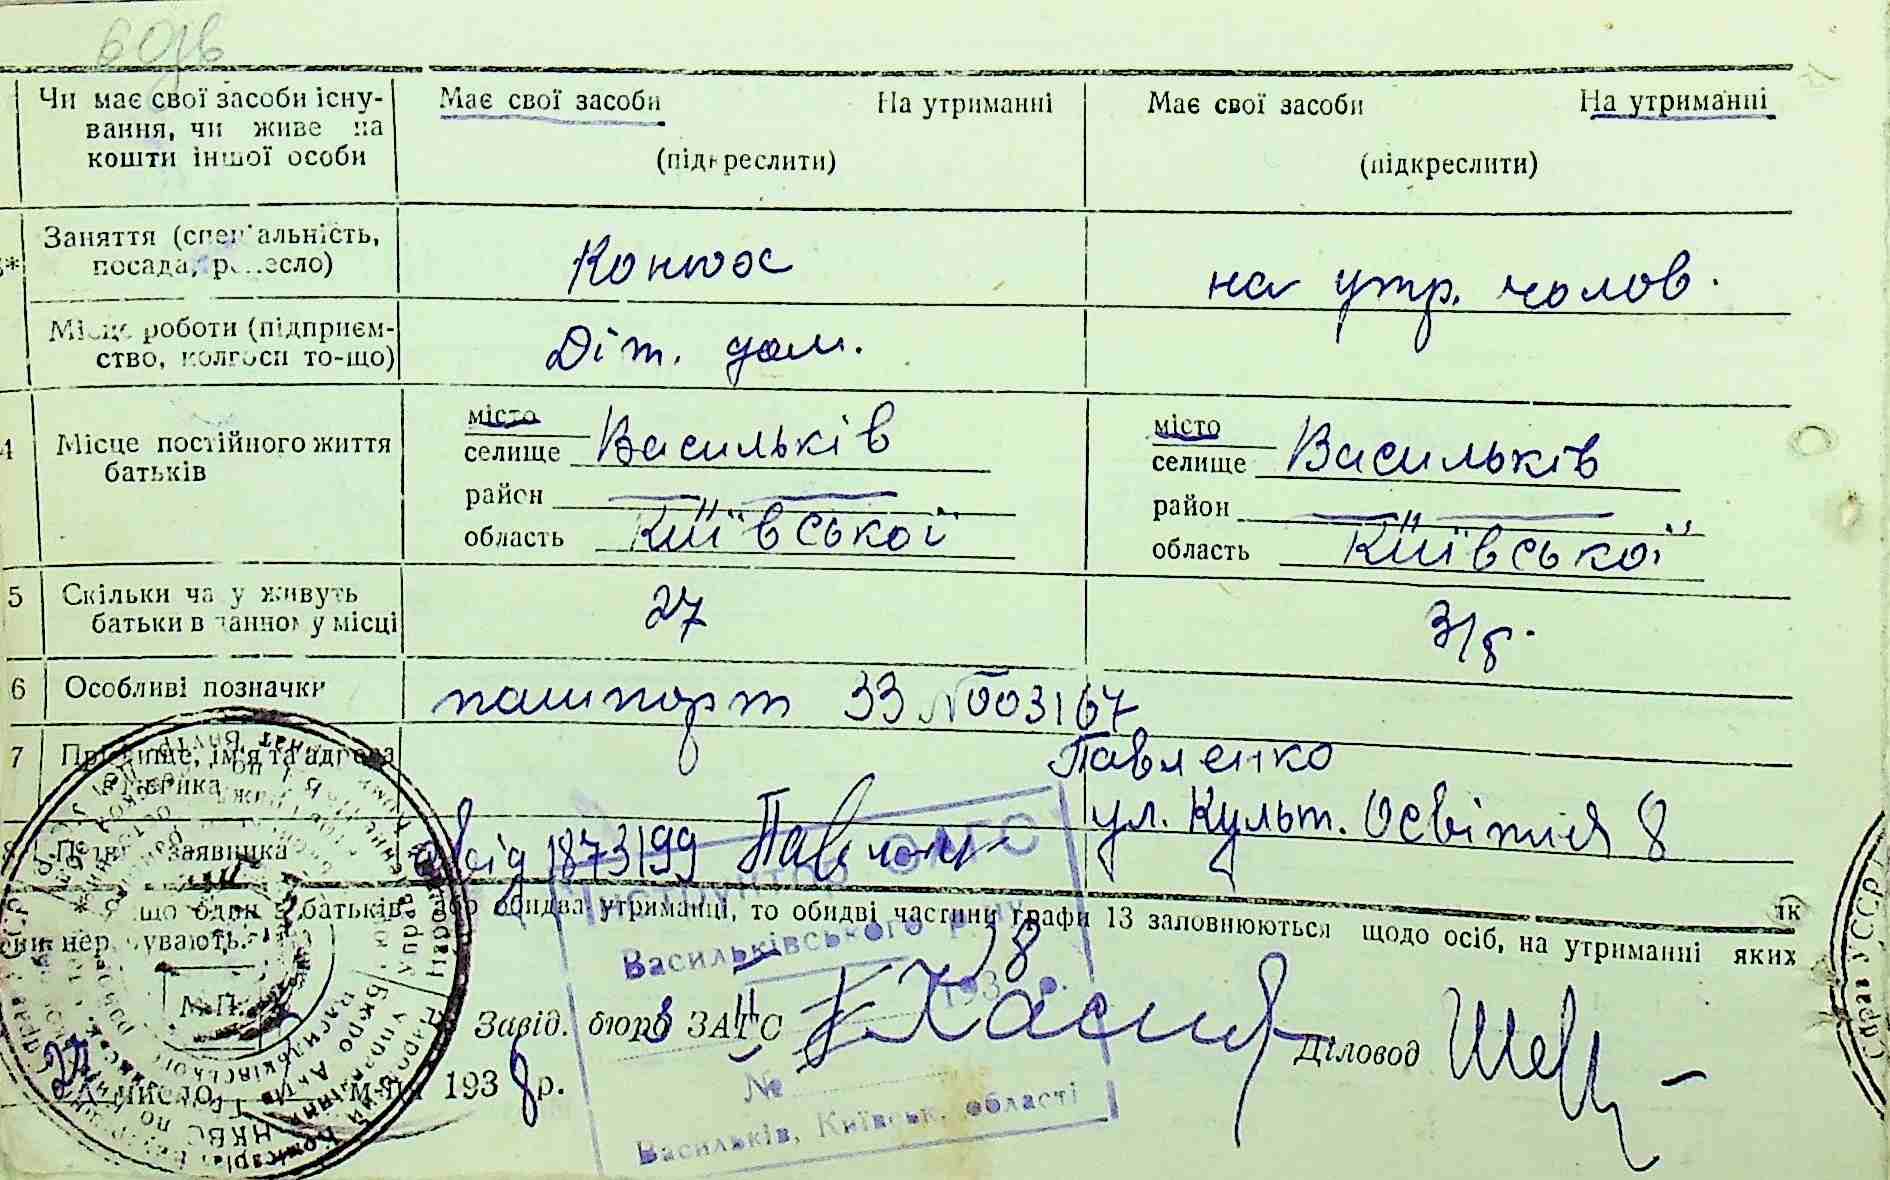 Чи має свої засоби існу-
вання, чи живе на
кошти іншої особи
Має свої засоби На утриманні
(підкреслити)
Має свої засоби На утриманні
(підкреслити)
Заняття (спеціальність,
посада, ремесло)
Конюх
на утр. чолов.
Місце роботи (підприєм-
ство, колгосп то-що)
Діт. дом.
4 Місце постійного життя
батьків
місто
селище Васильків
район
область Київської
місто
селище Васильків
район
область Київської
5 Скільки часу живуть
батьки в данному місці
27
6 Особливі позначки
пашпорт 33 № 003167
7 Прізвище, ім'я та адреса
Павленко
ул. Культ. Освітня 8
8 Підпис заявника
* Якщо один з батьків або обидва утриманці, то обидві частини графи 13 заповнюються щодо осіб, на утриманні яких
Васильківського р-ну
193 р.
Завід. бюро ЗАГС
Діловод
М.П.
27 число м-ця 1938 р.
№
Васильків, Київськ. області